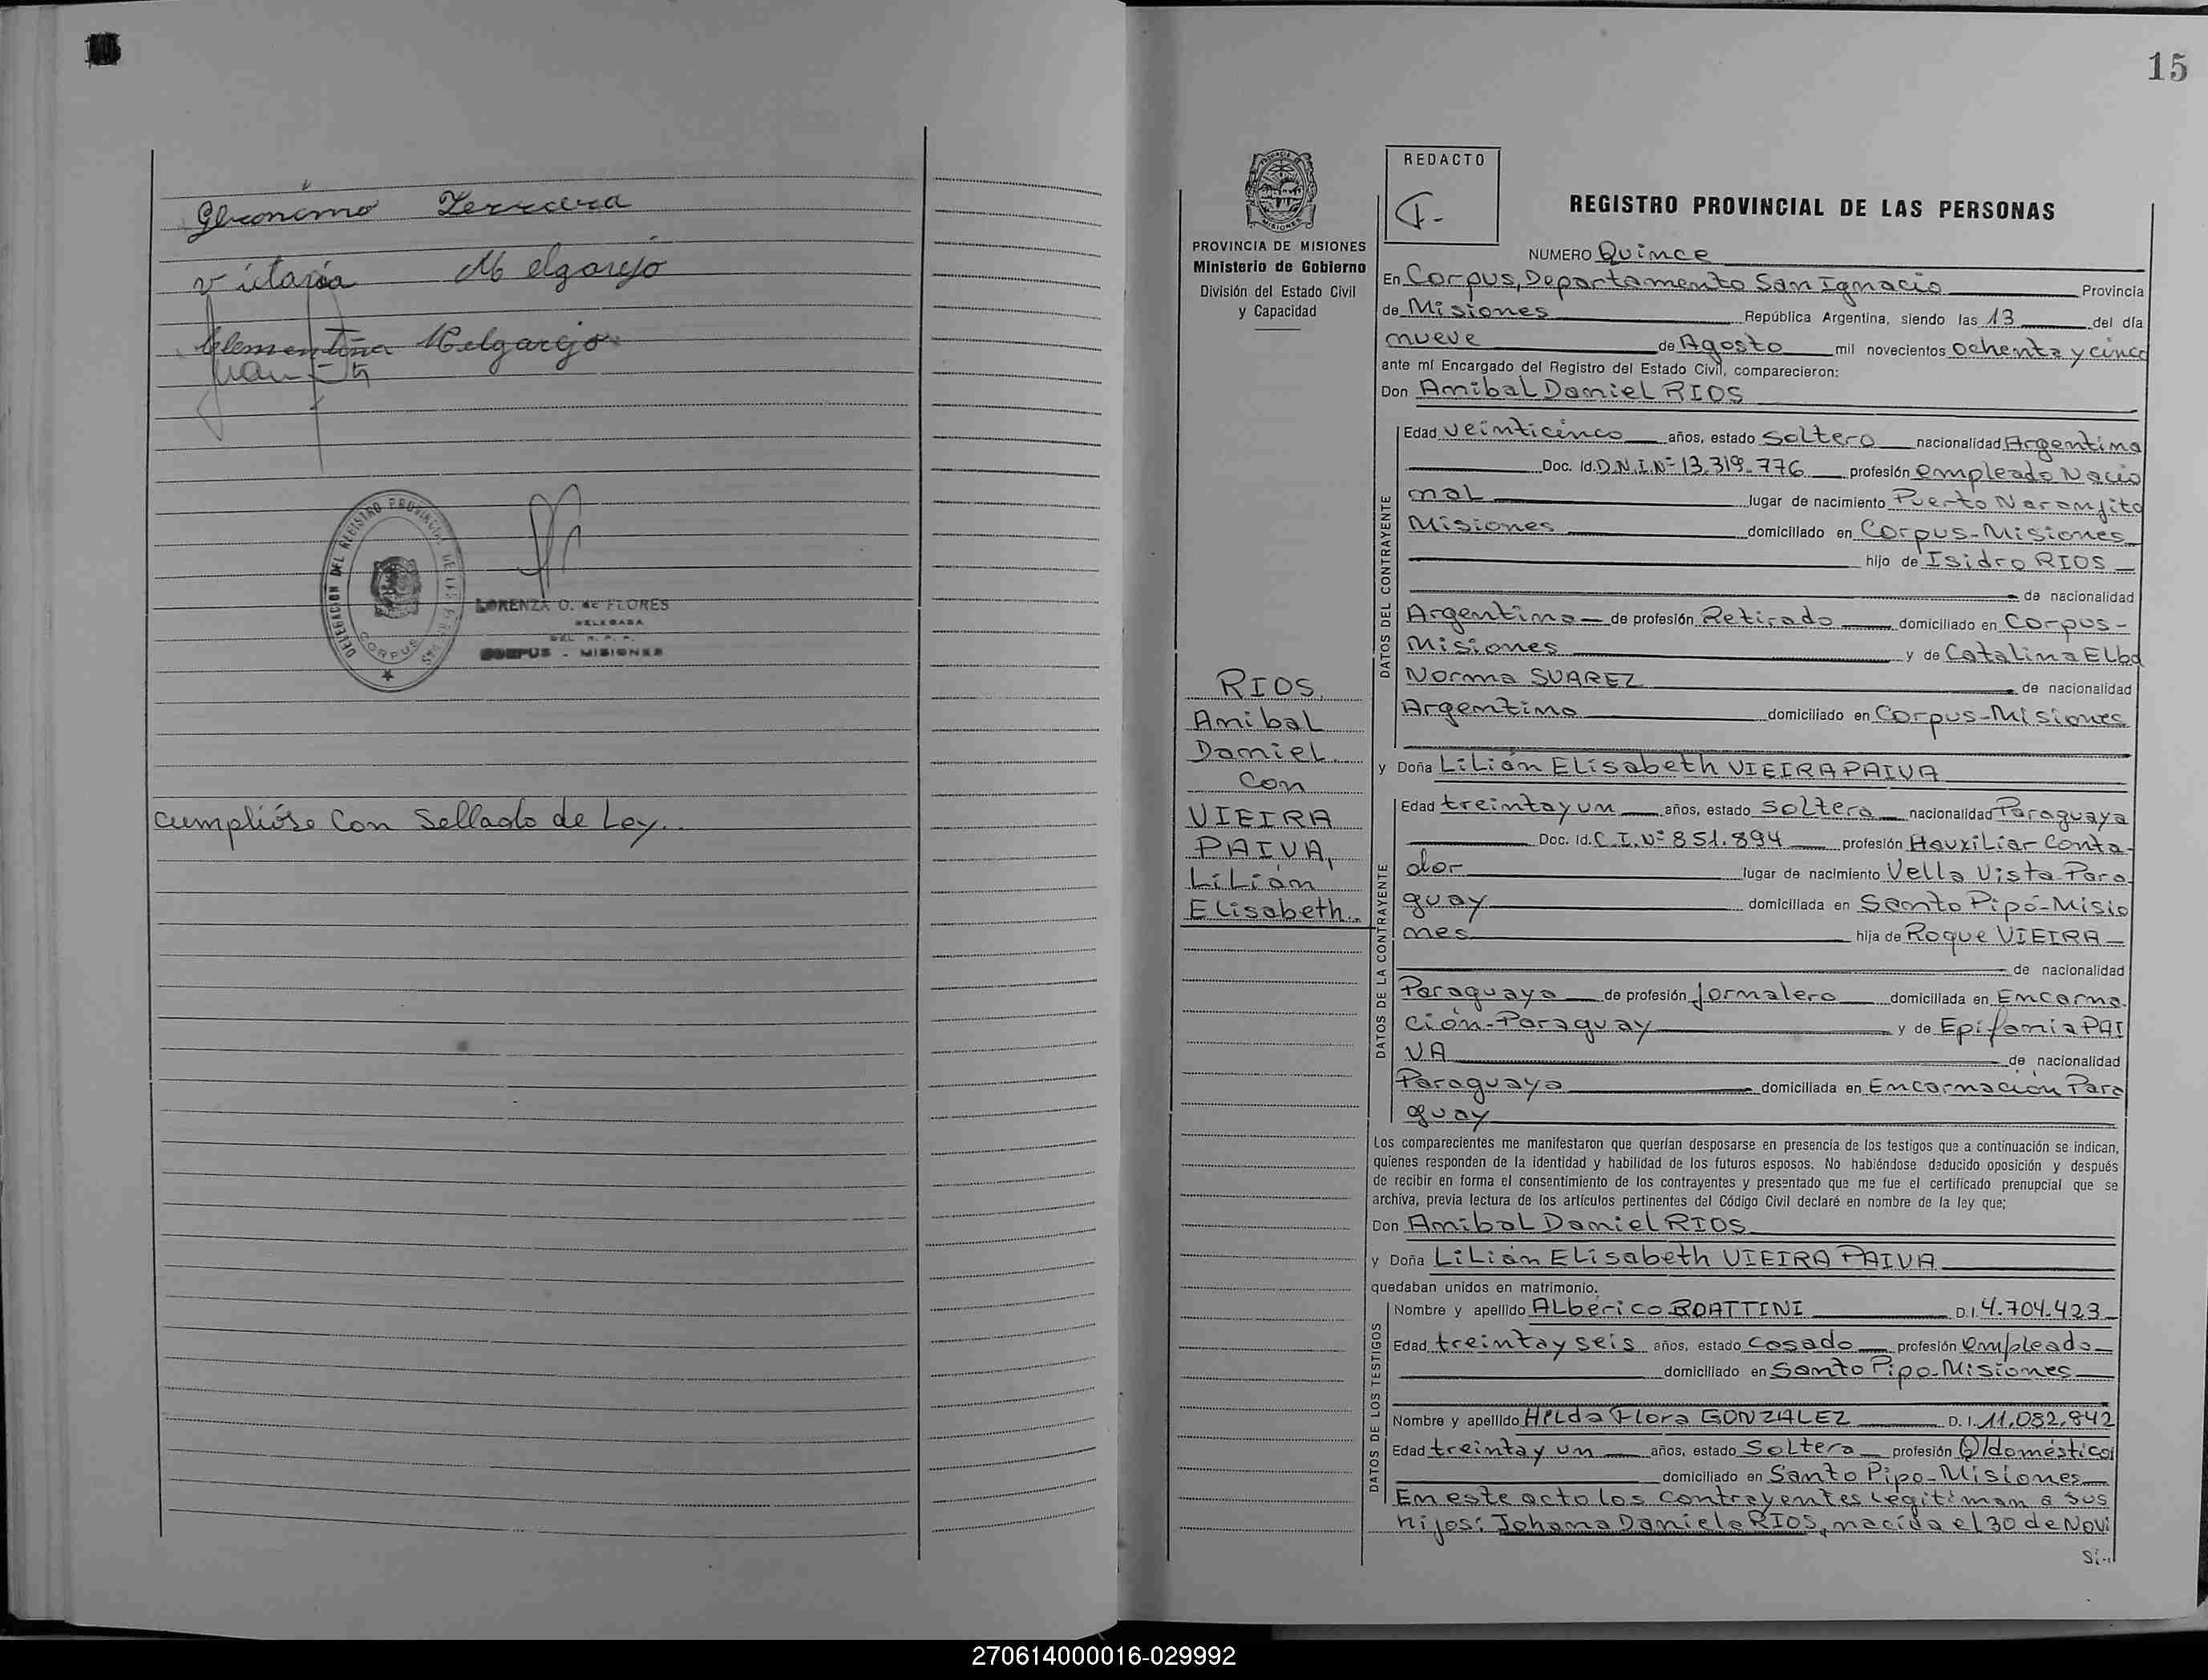 Gerónimo Ferreira
Victaria Melgarejo
Clementina Melgarejo
DELEGACION DEL REGISTRO PROVINCIAL DE LAS PERSONAS
CORPUS
LORENZA O. de FLORES
DELEGADA
DEL R. P. P.
CORPUS - MISIONES
Cumplióse Con Sellado de Ley..
15
PROVINCIA DE MISIONES
Ministerio de Gobierno
División del Estado Civil
y Capacidad
REDACTO
REGISTRO PROVINCIAL DE LAS PERSONAS
NUMERO Quince
En Corpus, Departamento San Ignacio Provincia
de Misiones República Argentina, siendo las 13 del día
nueve de Agosto mil novecientos ochenta y cinco
ante mí Encargado del Registro del Estado Civil, comparecieron:
Don Anibal Daniel RIOS
DATOS DEL CONTRAYENTE
Edad veinticinco años, estado soltero nacionalidad Argentina
Doc. Id. D.N.I.Nº 13.319.776 profesión empleado Nacio
nal lugar de nacimiento Puerto Naranjito
Misiones domiciliado en Corpus-Misiones
hijo de Isidro RIOS
de nacionalidad
Argentina de profesión Retirado domiciliado en Corpus-
Misiones y de Catalina Elba
Norma SUAREZ de nacionalidad
Argentina domiciliado en Corpus-Misiones
y Doña Lilián Elisabeth VIEIRA PAIVA
RIOS,
Anibal
Daniel
Con
VIEIRA
PAIVA,
Lilián
Elisabeth..
DATOS DE LA CONTRAYENTE
Edad treinta y un años, estado soltera nacionalidad Paraguaya
Doc. Id. C.I.Nº 851.894 profesión Hauxiliar Conta-
dor lugar de nacimiento Vella Vista Para
guay domiciliada en Santo Pipó-Misio
nes hija de Roque VIEIRA
de nacionalidad
Paraguaya de profesión Jornalero domiciliada en Encarna
ción-Paraguay y de Epifania PAI
VA de nacionalidad
Paraguaya domiciliada en Encarnación Para
guay
Los comparecientes me manifestaron que querían desposarse en presencia de los testigos que a continuación se indican,
quienes responden de la identidad y habilidad de los futuros esposos. No habiéndose deducido oposición y después
de recibir en forma el consentimiento de los contrayentes y presentado que me fue el certificado prenupcial que se
archiva, previa lectura de los artículos pertinentes del Código Civil declaré en nombre de la ley que;
Don Anibal Daniel RIOS
y Doña Lilián Elisabeth VIEIRA PAIVA
quedaban unidos en matrimonio.
DATOS DE LOS TESTIGOS
Nombre y apellido Alberico ROATTINI D.I. 4.704.423
Edad treinta y seis años, estado casado profesión empleado
domiciliado en Santo Pipo-Misiones
Nombre y apellido Hilda Flora GONZALEZ D. I. 11.082.842
Edad treinta y un años, estado Soltera profesión Q/domésticos
domiciliado en Santo Pipo-Misiones
En este acto los contrayentes legitiman a sus
hijos: Johana Daniela RIOS, nacida el 30 de Novi
270614000016-029992